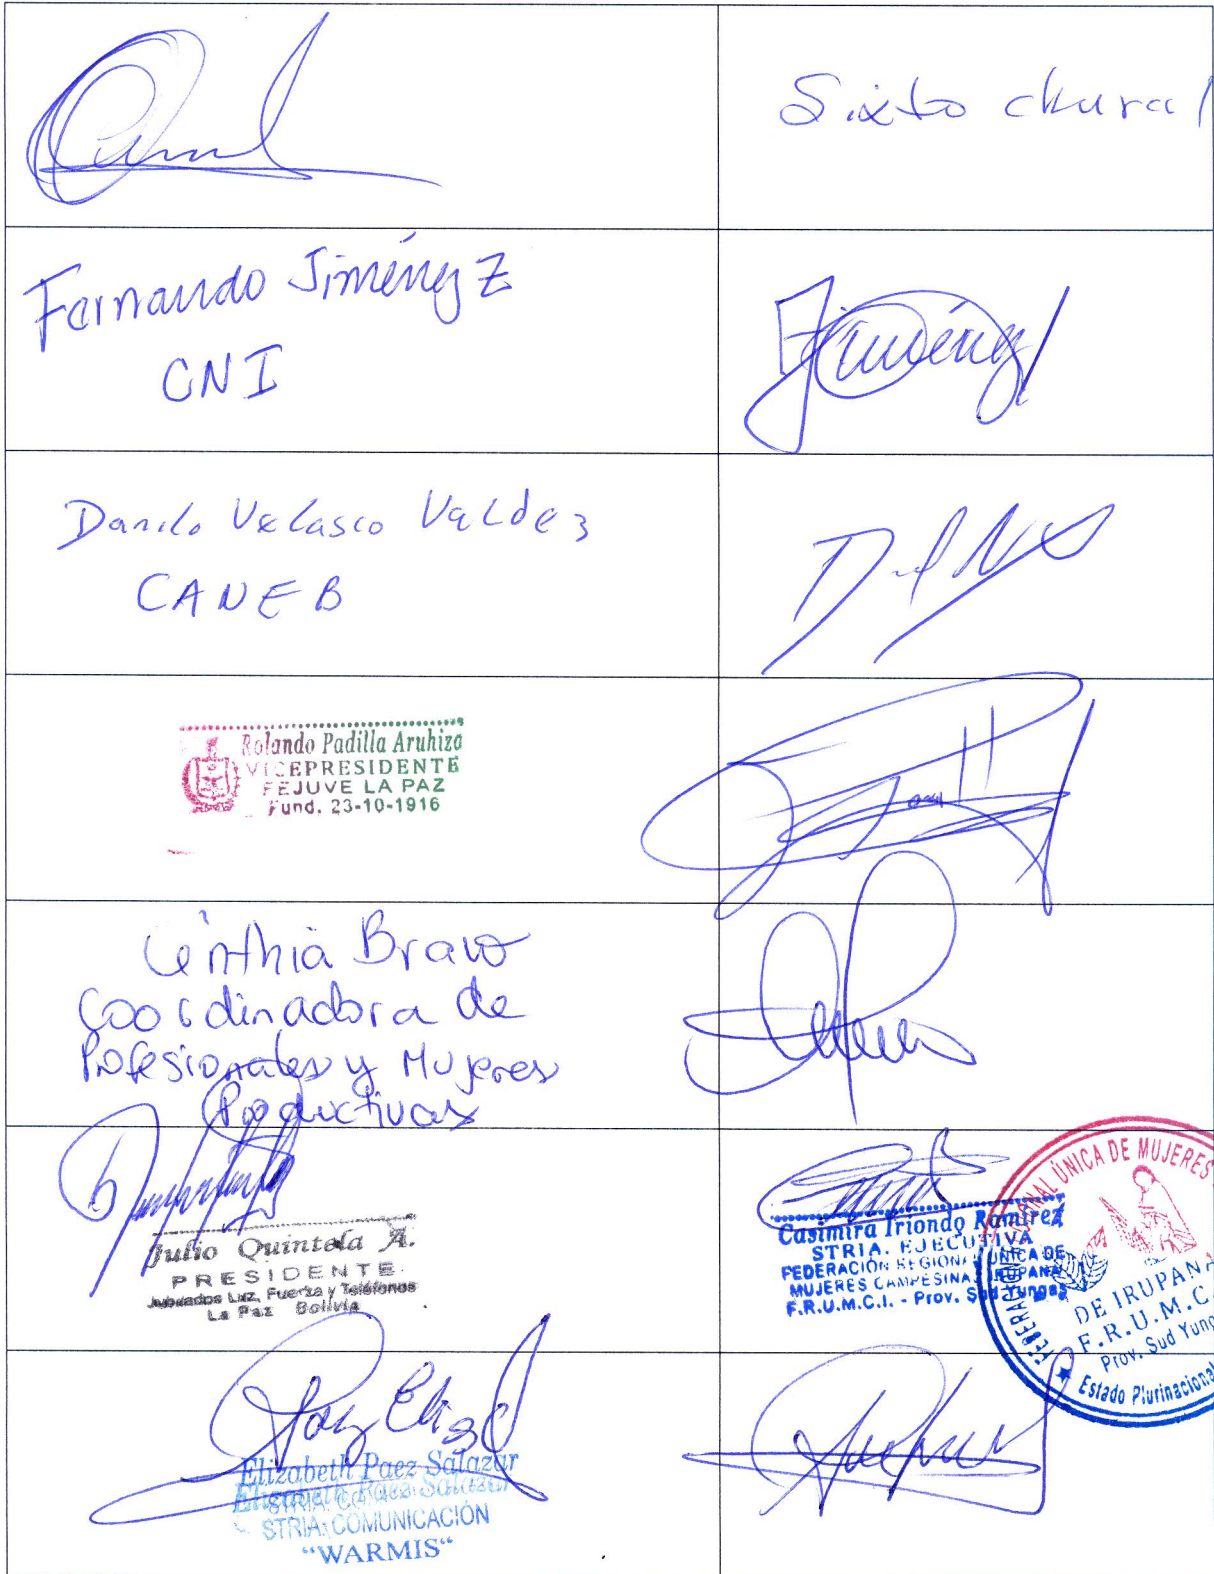 Sixto chura
Fernando Jiménez
CNI
Jiménez
Danilo Velasco Valdez
CANEB
Rolando Padilla Aruhiza
VICEPRESIDENTE
FEJUVE LA PAZ
Fund. 23-10-1916
Cinthia Bravo
Coordinadora de
Profesionales y Mujeres
Productivas
Julio Quintela A.
PRESIDENTE
Jubilados Luz, Fuerza y Teléfonos
La Paz Bolivia
Casimira Iriondo Ramirez
STRIA. EJECUTIVA
FEDERACIÓN REGIONAL ÚNICA DE
MUJERES CAMPESINAS IRUPANA
F.R.U.M.C.I. - Prov. Sud Yungas
ÚNICA DE MUJERES
DE IRUPANA
F.R.U.M.C.
Prov. Sud Yung
Estado Plurinacional
Elizabeth Paez Salazar
Elizabeth Paez Salazar
STRIA. COMUNICACIÓN
“WARMIS“